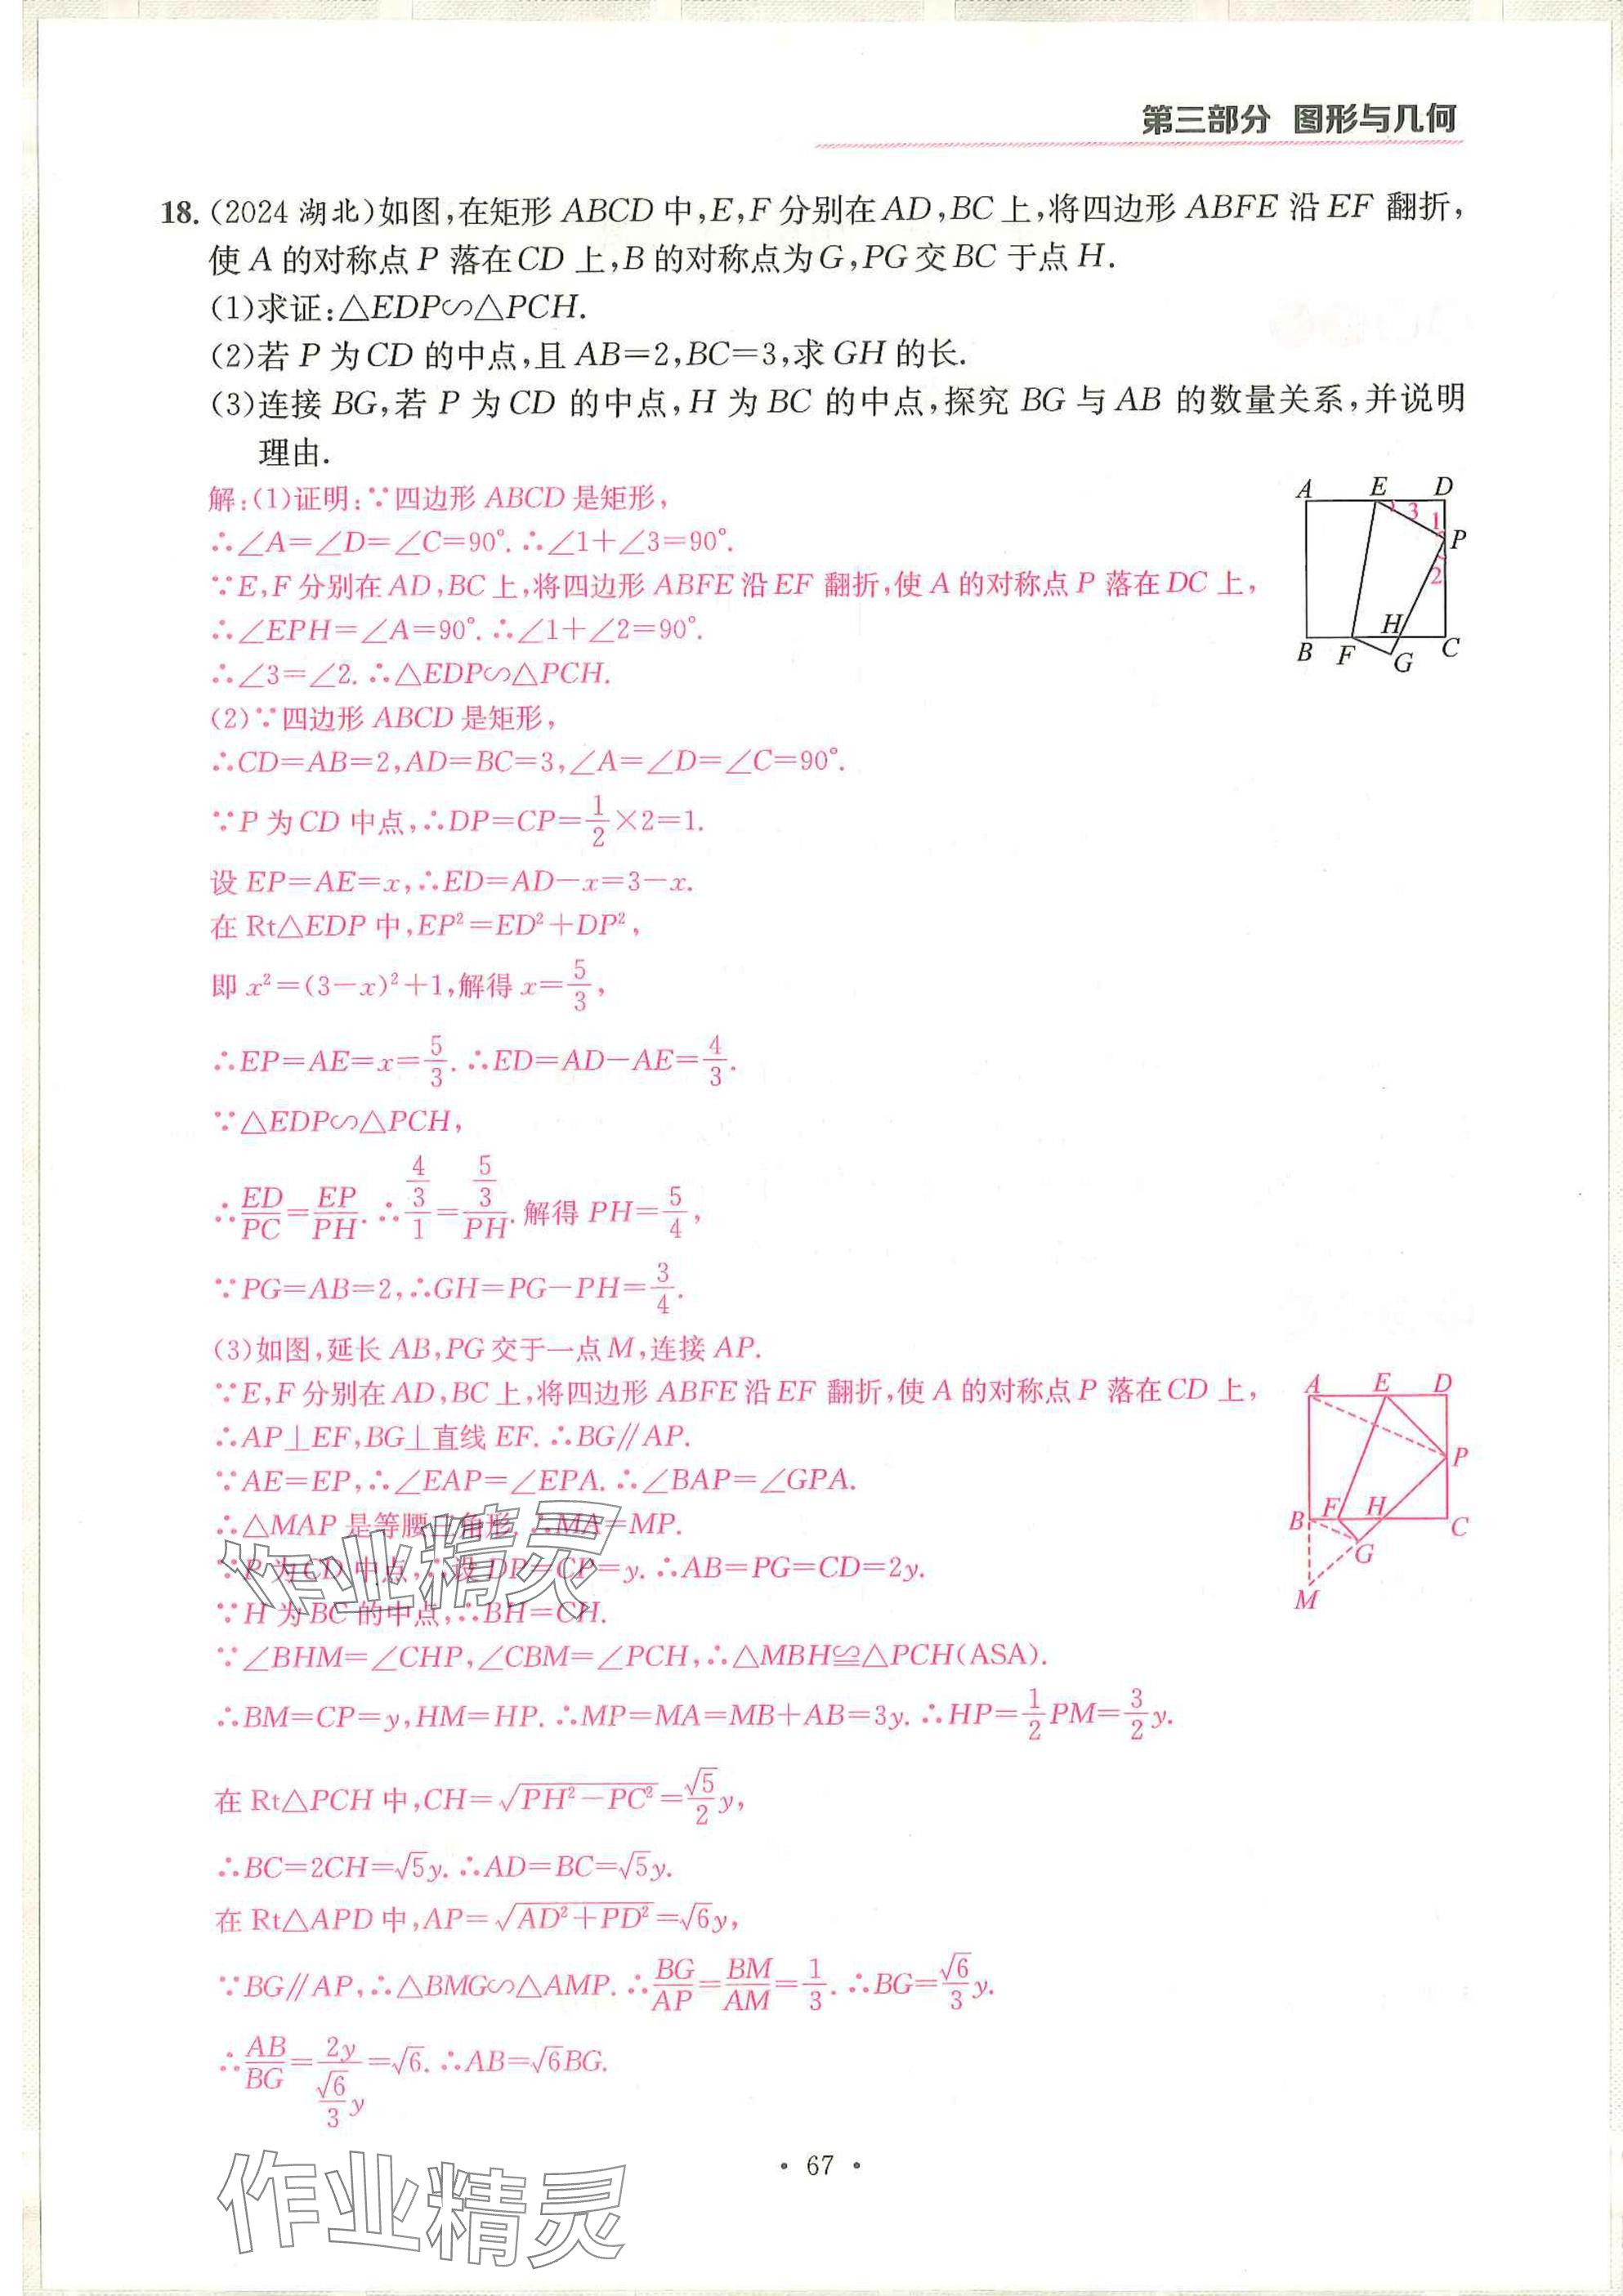 第三部分 图形与几何
18.(2024 湖北)如图,在矩形 ABCD 中,E,F 分别在AD,BC上,将四边形 ABFE 沿 EF 翻折,
使 A 的对称点 P 落在CD 上,B 的对称点为G,PG交BC 于点 H.
(1)求证:△EDP∽△PCH.
(2)若 P 为CD 的中点,且 AB=2,BC=3,求 GH 的长.
(3)连接 BG,若 P 为CD 的中点,H 为 BC 的中点,探究 BG 与 AB 的数量关系,并说明
理由.
解:(1)证明:∵四边形 ABCD 是矩形,
∴∠A=∠D=∠C=90°.∴∠1+∠3=90°.
∵E,F 分别在AD,BC上,将四边形 ABFE沿EF 翻折,使 A 的对称点 P 落在DC 上,
∴∠EPH=∠A=90°.∴∠1+∠2=90°.
∴∠3=∠2.∴△EDP∽△PCH.
A E D
3 1
P
2
H
B F G C
(2)∵四边形 ABCD 是矩形,
∴CD=AB=2,AD=BC=3,∠A=∠D=∠C=90°.
∵P 为CD 中点,∴DP=CP=1/2×2=1.
设 EP=AE=x,∴ED=AD−x=3−x.
在 Rt△EDP 中,EP²=ED²+DP²,
即 x²=(3−x)²+1,解得 x=5/3,
∴EP=AE=x=5/3.∴ED=AD−AE=4/3.
∵△EDP∽△PCH,
∴ED/PC=EP/PH.∴(4/3)/1=(5/3)/PH.解得 PH=5/4,
∵PG=AB=2,∴GH=PG−PH=3/4.
(3)如图,延长 AB,PG交于一点M,连接 AP.
∵E,F 分别在AD,BC上,将四边形 ABFE沿EF 翻折,使 A 的对称点 P 落在CD 上,
∴AP⊥EF,BG⊥直线 EF.∴BG∥AP.
∵AE=EP,∴∠EAP=∠EPA.∴∠BAP=∠GPA.
∴△MAP 是等腰三角形.∴MA=MP.
∵P 为CD 中点,∴设 DP=CP=y.∴AB=PG=CD=2y.
∵H 为BC 的中点,∴BH=CH.
∵∠BHM=∠CHP,∠CBM=∠PCH,∴△MBH≌△PCH(ASA).
∴BM=CP=y,HM=HP.∴MP=MA=MB+AB=3y.∴HP=1/2PM=3/2y.
A E D
P
B F H C
G
M
在 Rt△PCH 中,CH=√(PH²−PC²)=√5/2y,
∴BC=2CH=√5y.∴AD=BC=√5y.
在 Rt△APD 中,AP=√(AD²+PD²)=√6y,
∵BG∥AP,∴△BMG∽△AMP.∴BG/AP=BM/AM=1/3.∴BG=√6/3y.
∴AB/BG=2y/(√6/3y)=√6.∴AB=√6BG.
作业精灵
• 67 •
作业精灵